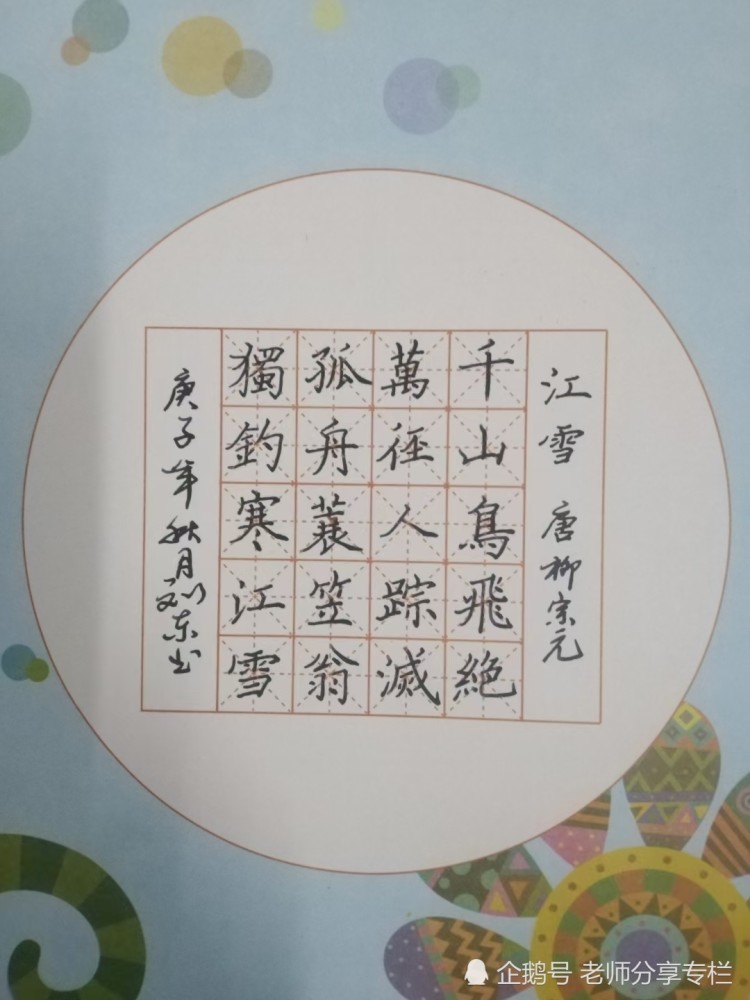 江雪 唐柳宗元
千山鳥飛絶
萬徑人踪滅
孤舟蓑笠翁
獨釣寒江雪
庚子年秋月刘东书
企鹅号 老师分享专栏